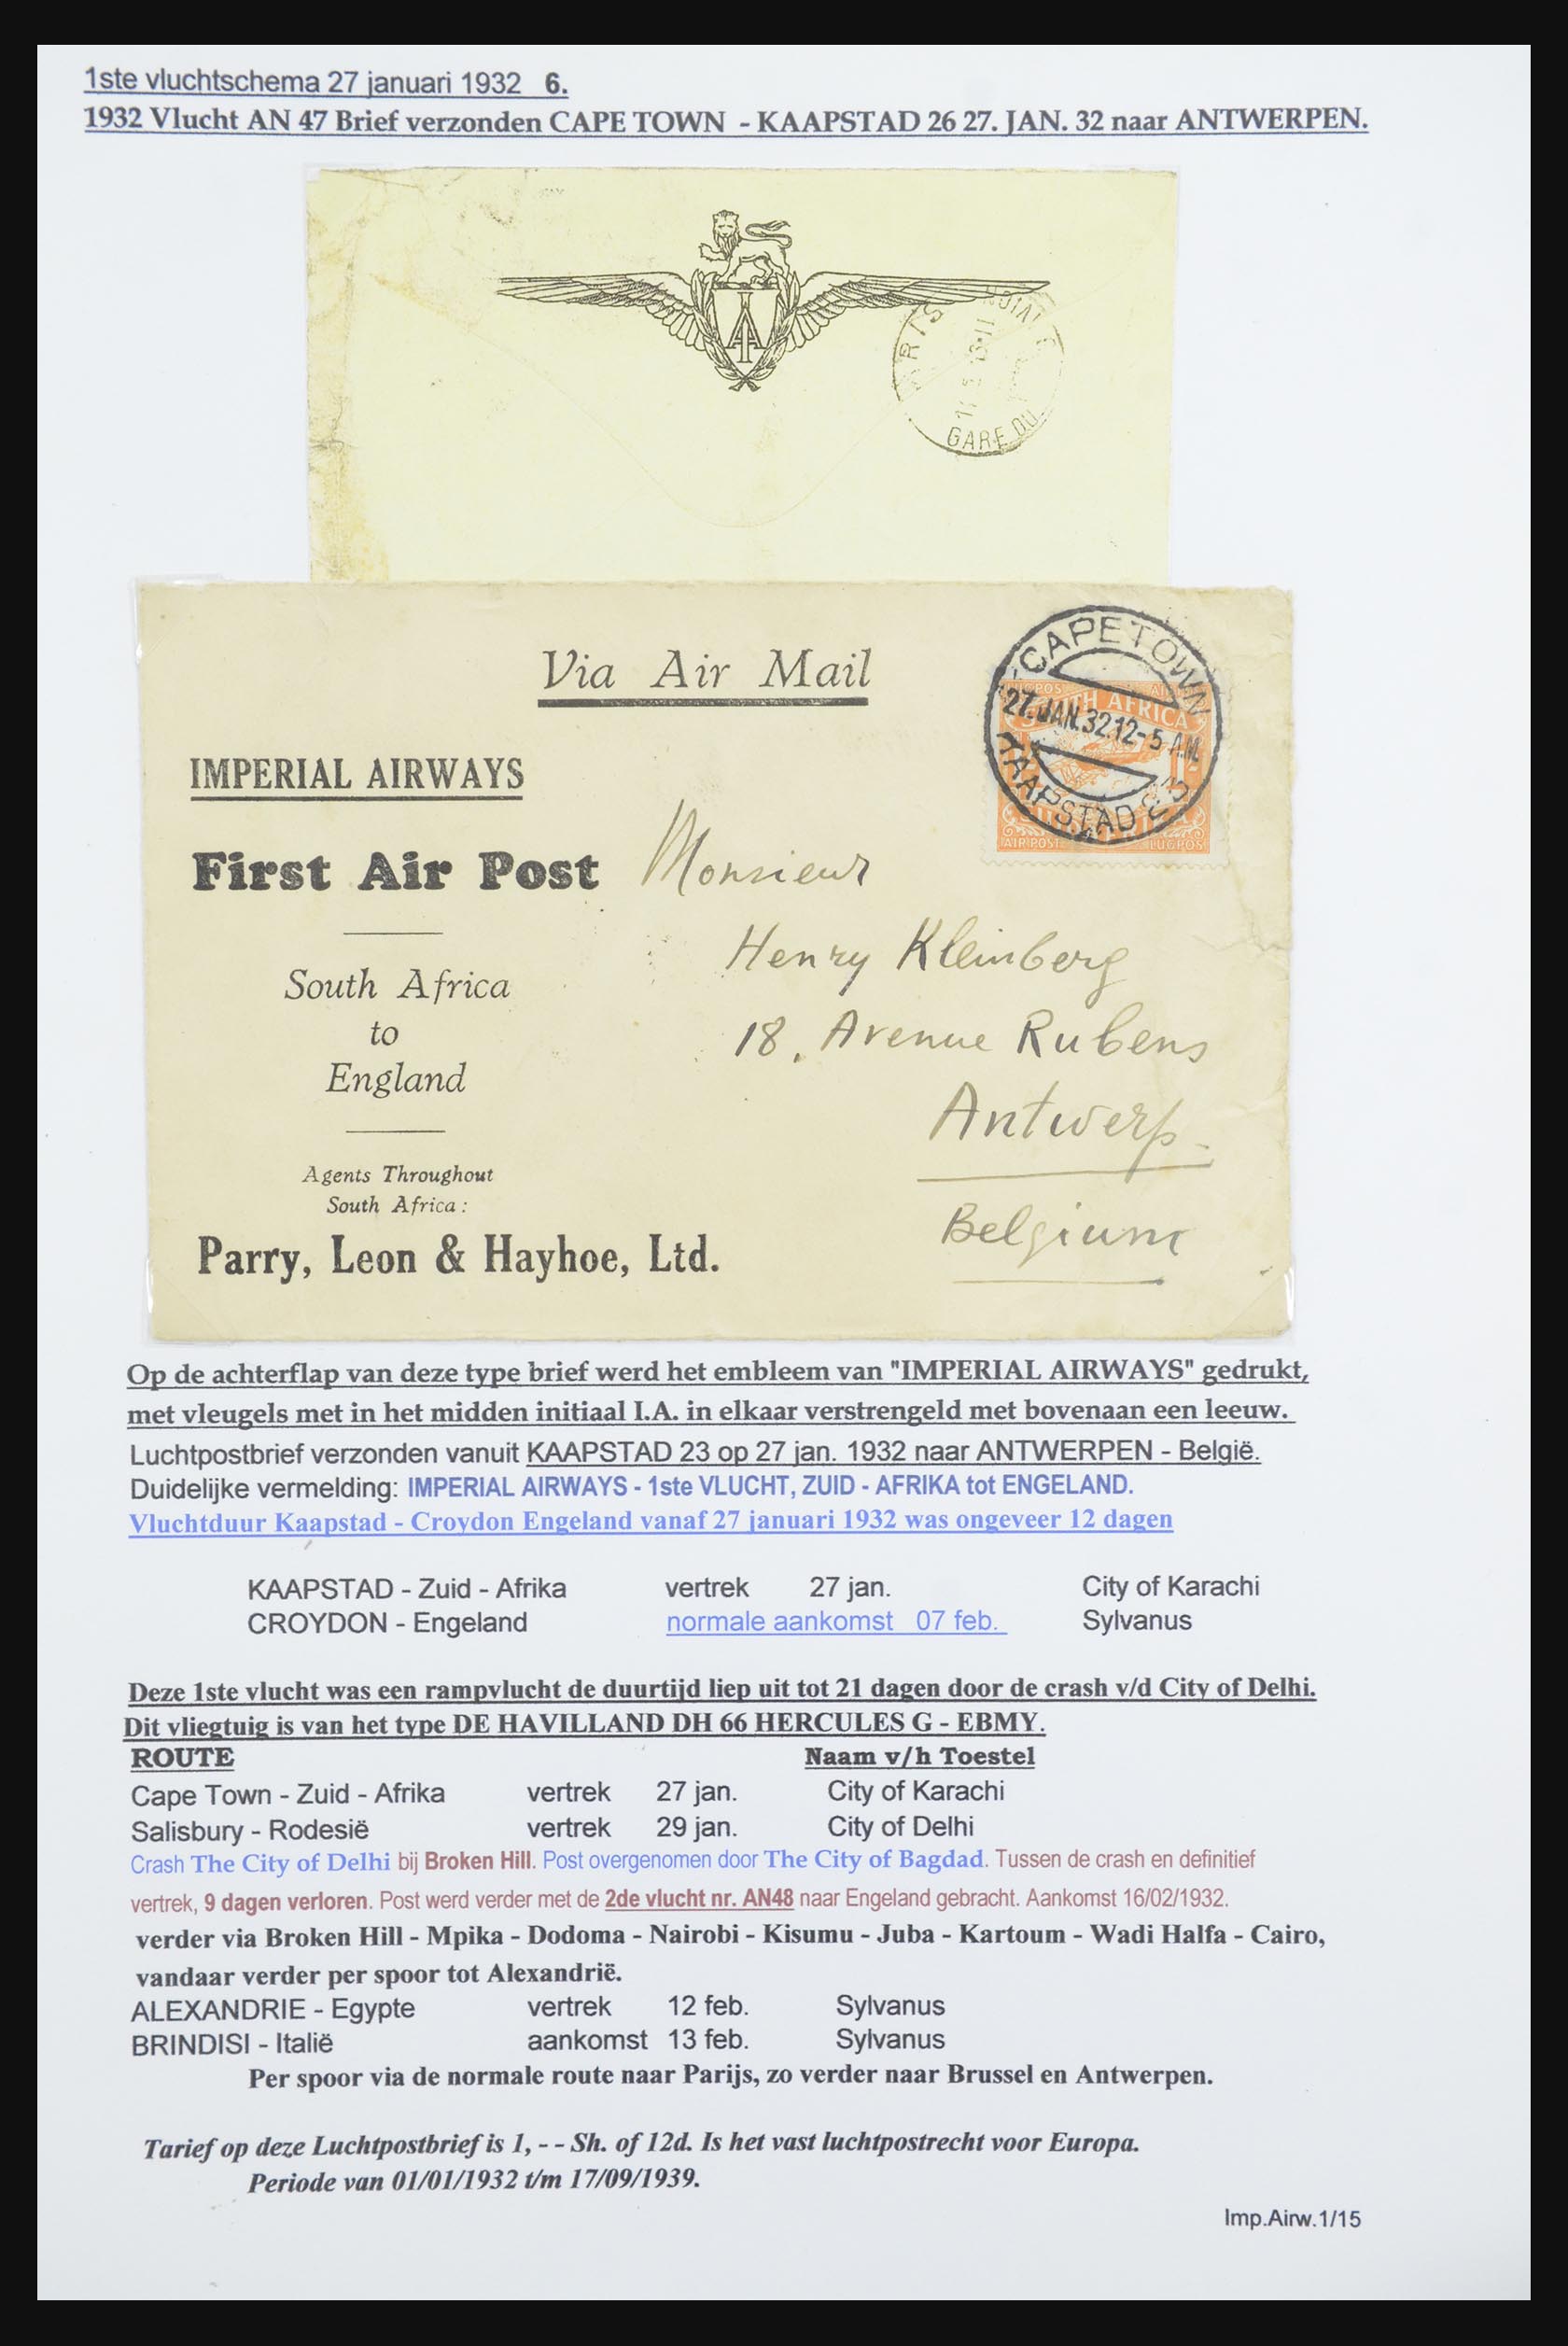 1ste vluchtschema 27 januari 1932 6.
1932 Vlucht AN 47 Brief verzonden CAPE TOWN - KAAPSTAD 26 27. JAN. 32 naar ANTWERPEN.
IA
GARE DU
Via Air Mail
CAPE TOWN
27.JAN.32.12-5 AM.
KAAPSTAD 23
SOUTH AFRICA
AIR POST LUGPOS
IMPERIAL AIRWAYS
First Air Post
South Africa
to
England
Agents Throughout
South Africa:
Parry, Leon & Hayhoe, Ltd.
Monsieur
Henry Kleinberg
18, Avenue Rubens
Antwerp
Belgium
Op de achterflap van deze type brief werd het embleem van "IMPERIAL AIRWAYS" gedrukt,
met vleugels met in het midden initiaal I.A. in elkaar verstrengeld met bovenaan een leeuw.
Luchtpostbrief verzonden vanuit KAAPSTAD 23 op 27 jan. 1932 naar ANTWERPEN - België.
Duidelijke vermelding: IMPERIAL AIRWAYS - 1ste VLUCHT, ZUID - AFRIKA tot ENGELAND.
Vluchtduur Kaapstad - Croydon Engeland vanaf 27 januari 1932 was ongeveer 12 dagen
KAAPSTAD - Zuid - Afrika vertrek 27 jan. City of Karachi
CROYDON - Engeland normale aankomst 07 feb. Sylvanus
Deze 1ste vlucht was een rampvlucht de duurtijd liep uit tot 21 dagen door de crash v/d City of Delhi.
Dit vliegtuig is van het type DE HAVILLAND DH 66 HERCULES G - EBMY.
ROUTE Naam v/h Toestel
Cape Town - Zuid - Afrika vertrek 27 jan. City of Karachi
Salisbury - Rodesië vertrek 29 jan. City of Delhi
Crash The City of Delhi bij Broken Hill. Post overgenomen door The City of Bagdad. Tussen de crash en definitief
vertrek, 9 dagen verloren. Post werd verder met de 2de vlucht nr. AN48 naar Engeland gebracht. Aankomst 16/02/1932.
verder via Broken Hill - Mpika - Dodoma - Nairobi - Kisumu - Juba - Kartoum - Wadi Halfa - Cairo,
vandaar verder per spoor tot Alexandrië.
ALEXANDRIE - Egypte vertrek 12 feb. Sylvanus
BRINDISI - Italië aankomst 13 feb. Sylvanus
Per spoor via de normale route naar Parijs, zo verder naar Brussel en Antwerpen.
Tarief op deze Luchtpostbrief is 1, - - Sh. of 12d. Is het vast luchtpostrecht voor Europa.
Periode van 01/01/1932 t/m 17/09/1939.
Imp.Airw.1/15